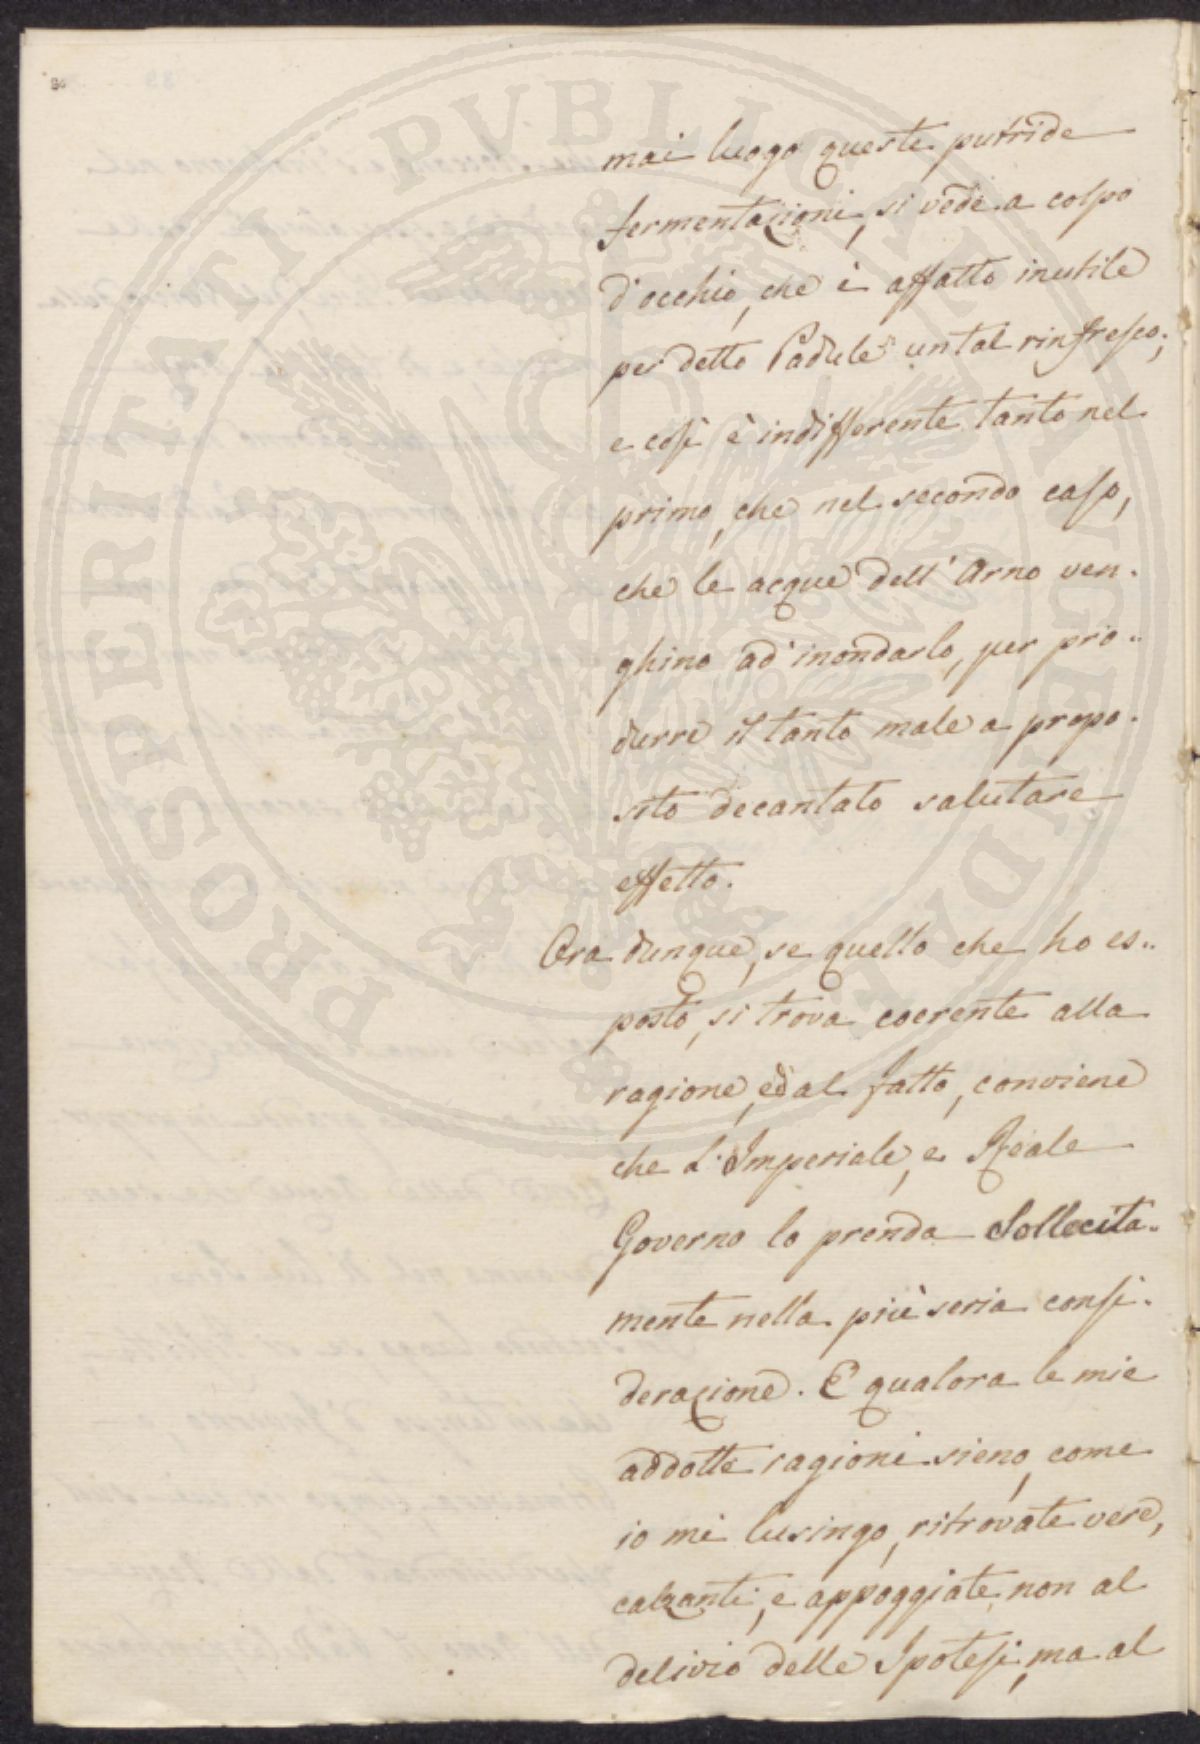 mai luogo queste putride
fermentazioni, si vede a colpo
d'occhio, che è affatto inutile
per detto Padule un tal rinfresco;
e così è indifferente tanto nel
primo, che nel secondo caso,
che le acque dell'Arno ven-
ghino ad' inondarlo, per pro-
durre il tanto male a propo-
sito decantato salutare
effetto.
Ora dunque, se quello che ho es-
posto, si trova coerente alla
ragione, ed al fatto, conviene
che L'Imperiale, e Reale
Governo lo prenda Sollecita-
mente nella più seria consi-
derazione. E qualora le mie
addotte ragioni sieno, come
io mi lusingo, ritrovate vere,
calzanti, e appoggiate non al
delivio delle Ipotesi, ma al
PROSPERITATI PVBLICAE AVGENDAE